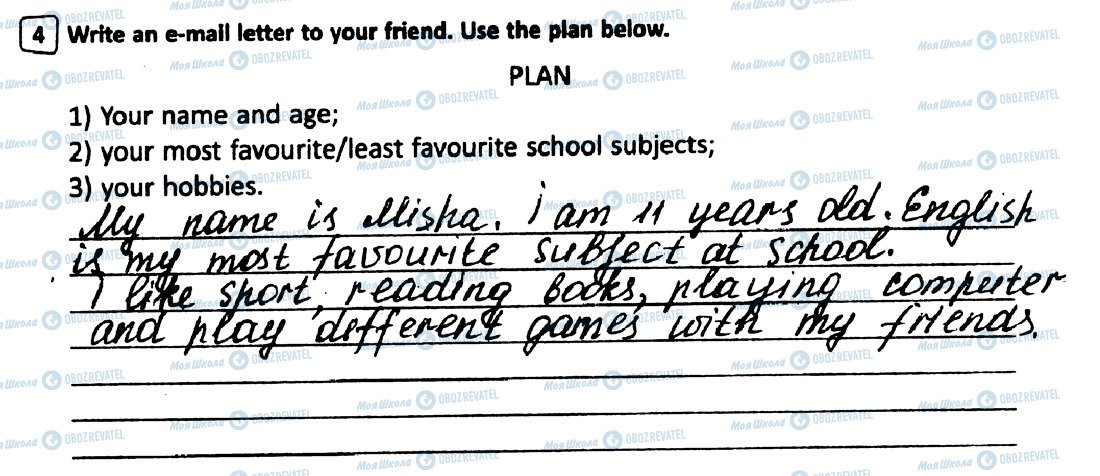 4 Write an e-mail letter to your friend. Use the plan below.
PLAN
1) Your name and age;
2) your most favourite/least favourite school subjects;
3) your hobbies.
My name is Misha. I am 11 years old. English
is my most favourite subject at school.
I like sport, reading books, playing computer
and play different games with my friends.
Моя Школа OBOZREVATEL